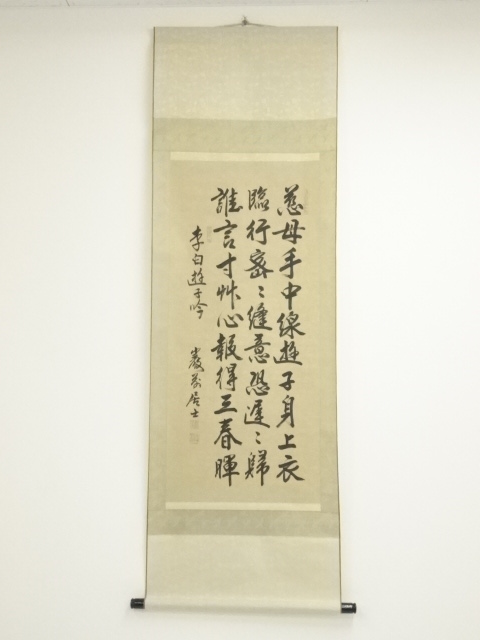 慈母手中線遊子身上衣
臨行密〻縫意恐遅〻歸
誰言寸艸心報得三春暉
李白遊子吟
居士